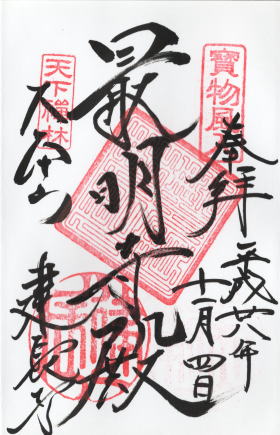 寶物風
奉拝
平成廿六年
十一月四日
最明寺殿
天下禅林
大本山
建長寺